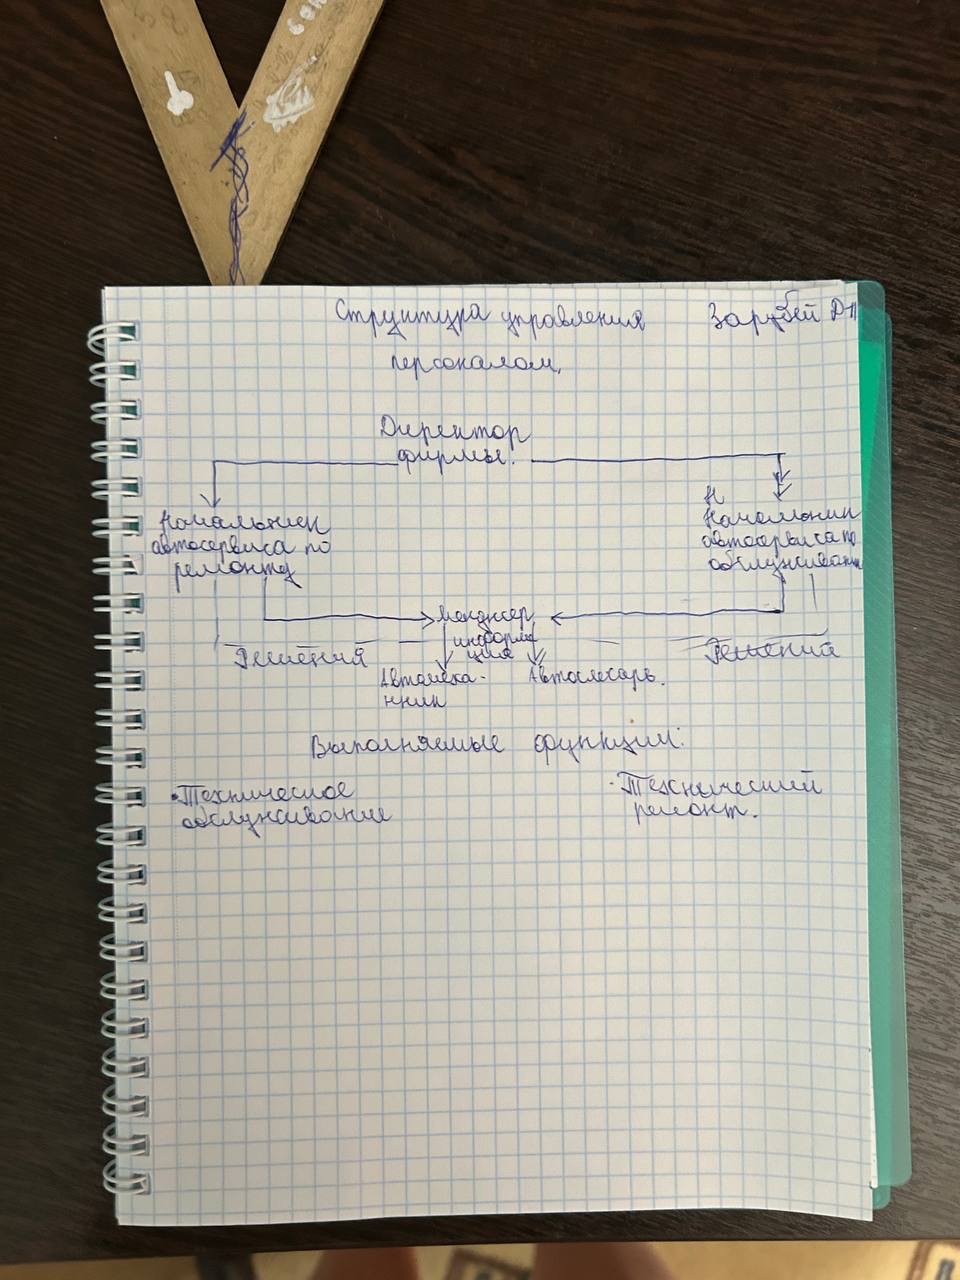 Структура управления
персоналом.
Зарубей
Директор
фирмы.
Начальник
автосервиса по
ремонту
Н
Начальник
автосервиса по
обслуживани
Менджер
информа
ция
Решения
Решения
Автомеха-
нник
Автослесарь.
Выполняемые функции:
• Техническое
обслуживание
· Технический
ремонт.